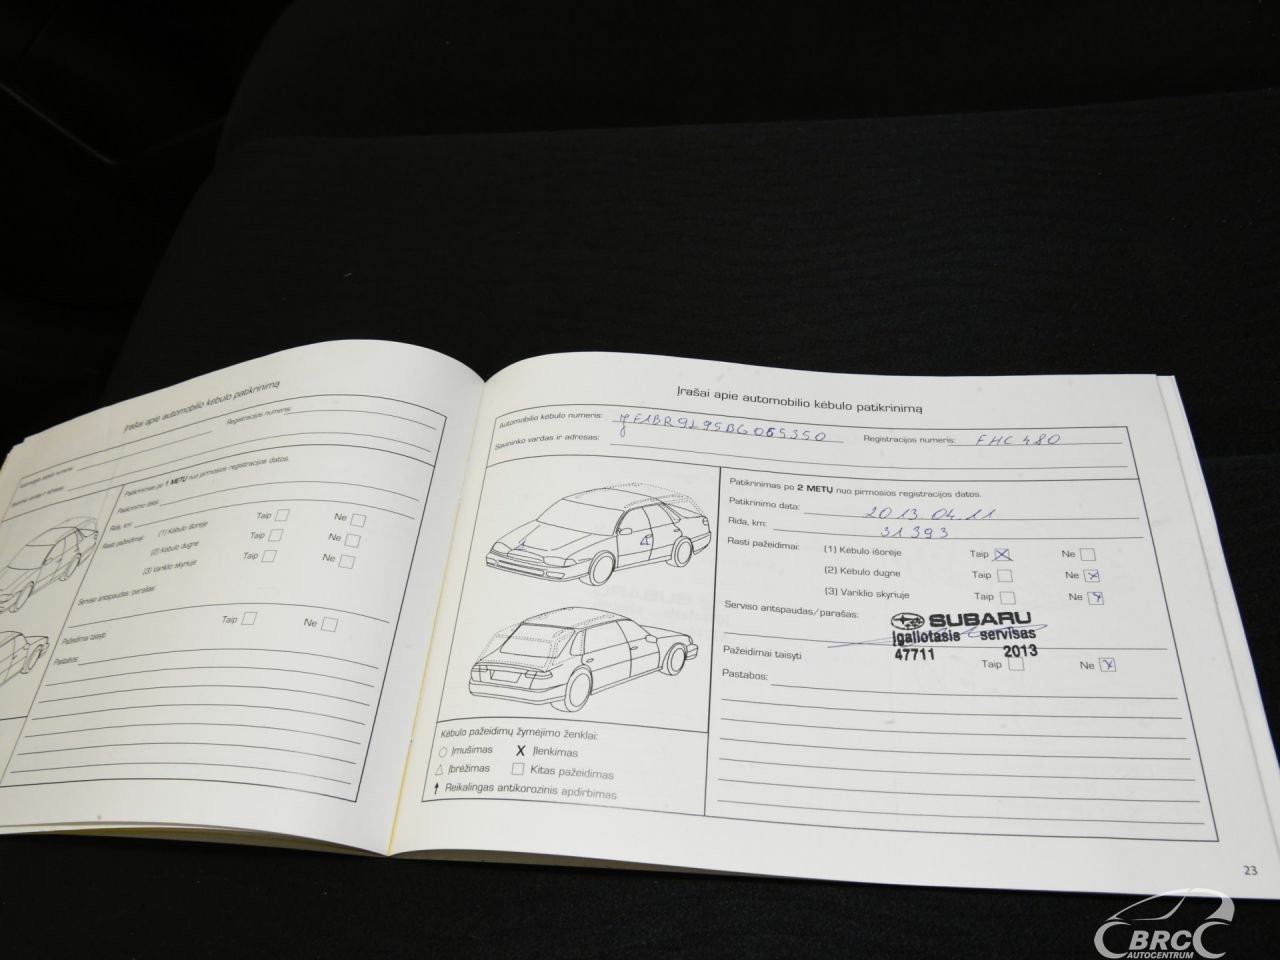 Įrašai apie automobilio kėbulo patikrinimą
Automobilio kėbulo numeris:
Registracijos numeris:
Savininko vardas ir adresas:
Patikrinimas po 1 METŲ nuo pirmosios registracijos datos.
Patikrinimo data:
Rida, km:
Rasti pažeidimai: (1) Kėbulo išorėje Taip Ne
(2) Kėbulo dugne Taip Ne
(3) Variklio skyriuje Taip Ne
Serviso antspaudas/parašas:
Pažeidimai taisyti Taip Ne
Pastabos:
Įrašai apie automobilio kėbulo patikrinimą
Automobilio kėbulo numeris: JF1BR9L95BG065350 Registracijos numeris: FHC 480
Savininko vardas ir adresas:
Patikrinimas po 2 METŲ nuo pirmosios registracijos datos.
Patikrinimo data: 2013.04.11
Rida, km: 31393
Rasti pažeidimai: (1) Kėbulo išorėje Taip X Ne
(2) Kėbulo dugne Taip Ne X
(3) Variklio skyriuje Taip Ne X
Serviso antspaudas/parašas: SUBARU
Įgaliotasis servisas
47711 2013
Pažeidimai taisyti Taip Ne X
Pastabos:
Kėbulo pažeidimų žymėjimo ženklai:
○ Įmušimas X Įlenkimas
△ Įbrėžimas □ Kitas pažeidimas
↑ Reikalingas antikorozinis apdirbimas
23
BRC
AUTOCENTRUM